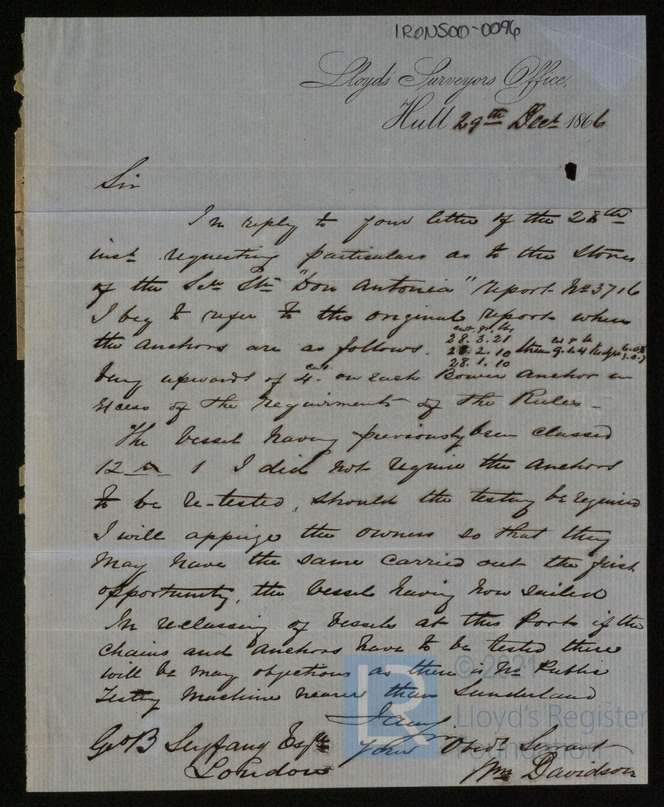 IRONS00-0096
Lloyd's Surveyors Office,
Hull 29th Dect 1866
Sir
In reply to your letter of the 28th
inst requesting particulars as to the Stores
of the Scr Str "Don Antonia" report No 3716
I beg to refer to the original report when
the anchors are as follows. cwt qr lbs 28.3.21
28.2.10 Stream 9.1.4
28.1.10
being upwards of 4 cwt on each Bower anchor in
excess of the requirements of the Rules -
The Vessel having previously been classed
12 A 1 I did not require the anchors
to be re-tested, should the testing be required
I will apprize the owners so that they
may have the same carried out the first
opportunity, the Vessel having now sailed
In reclassing of Vessels at this Port if the
Chains and anchors have to be tested there
will be many objections as there is No Public
Testing Machine nearer than Sunderland
I am Sir
Geo B Seyfang Esqre Your Obedt Servant
London Wm Davidson
LR
© 2021
Lloyd's Register
Foundation